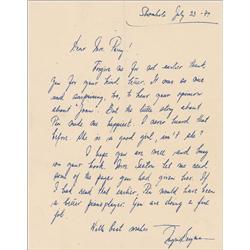 Stromboli July 23 - 49
Dear Mr. Perry!
Forgive me for not earlier thank
you for your kind letter. It was so nice
and surprising, too, to hear your opinion
about "Joan". But the little story about
Pia made me happiest. I never heard that
before. She is a good girl, isn't she?
I hope you are well and busy
on your book. Mrs. Sexton let me read
some of the pages you had given her. If
I had read that earlier, Pia would have been
a better pianoplayer. You are doing a fine
job.
With best wishes
Ingrid Bergman